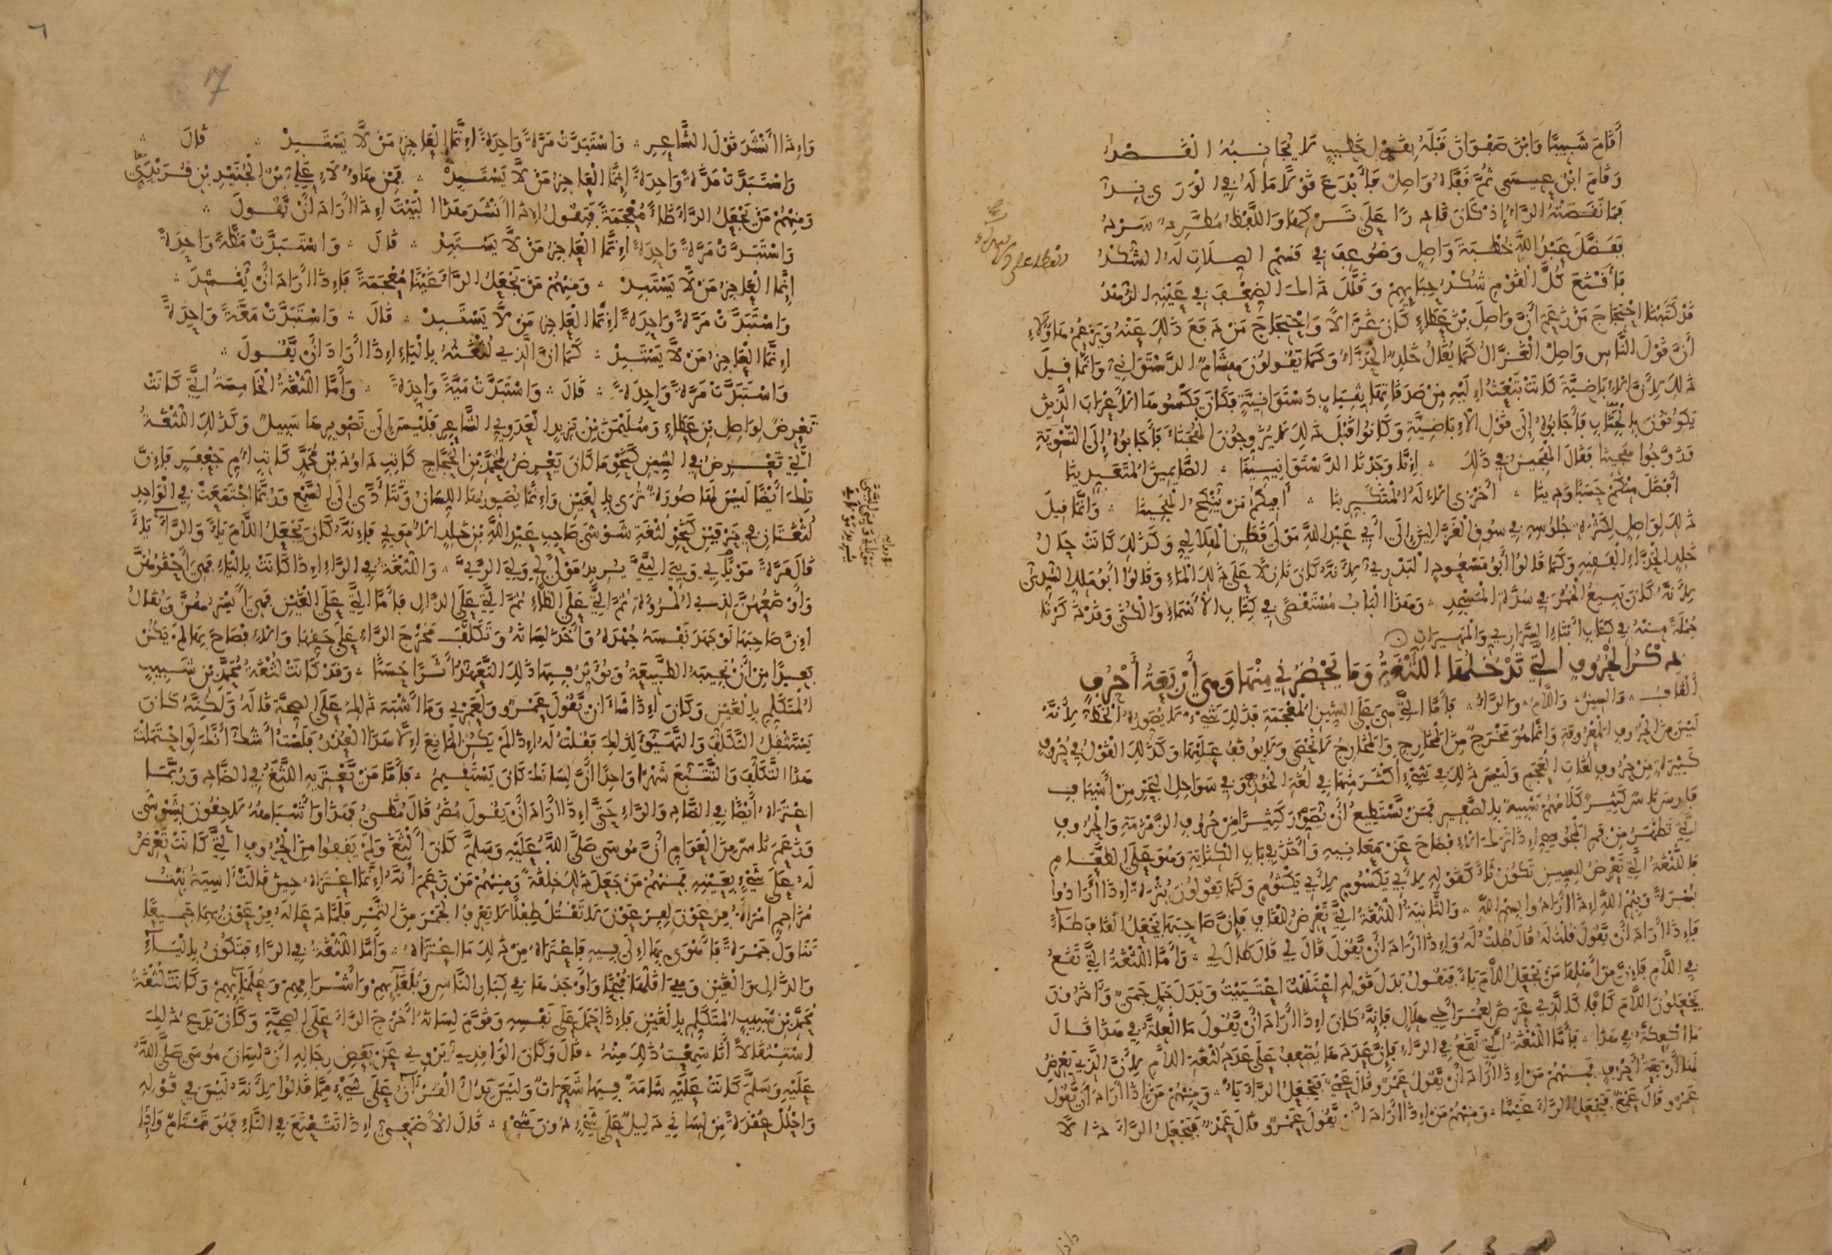 أقام شبيبا وابن صفوان قبله بقول خطيب لا يجانبه القصد
وقام ابن عيسى ثم قفاه واصل فأبدع قولا ما له في الورى ند
فما نقصته الراء إذ كان قادرا على تركها واللفظ مطرد سرد
ففضل عبد الله خطبة واصل وضوعف في قسم الصلات له الشكد
فأقنع كل القوم شكر حبائهم وقلل ذاك الضعف في عينه الزهد
قد كتبنا احتجاج من زعم أن واصل بن عطاء كان غزالا واحتجاج من دفع ذلك عنه ويزعم هؤلاء
أن قول الناس واصل الغزال كما يقال خالد الحذاء وكما يقولون هشام الدستواني وإنما قيل
ذلك لأن الإباضية كانت تبعث إليه من صدقاتها بثياب دستوانية فكان يكسوها الأعراب الذين
يكونون بالجناب فأجابوه إلى قول الإباضية وكانوا قبل ذلك لا يزوجون الهجناء فأجابوه إلى التسوية
وزوجوا هجينا فقال الهجين في ذلك إنا وجدنا الدستوانيينا الصائمين المتعبدينا
أفضل منكم حسبا ودينا أخزى الإله المتكبرينا أفيكم من ينكح الهجينا وإنما قيل
ذلك لواصل لكثرة جلوسه في سوق الغزالين إلى أبي عبد الله مولى قطن الهلالي وكذلك كانت حال
خالد الحذاء الفقيه وكما قالوا أبو مسعود البدري لأنه كان نازلا على ذلك الماء وقالوا أبو مالك السدي
لأنه كان يبيع الخمر في سدة المسجد وهذا الباب مستقصى في كتاب الأسماء والكنى وقد ذكرنا
جملة منه في كتاب أبناء السراري والمهيرات
ذكر الحروف التي تدخلها اللثغة وما يحضرني منها وهي أربعة أحرف
القاف والسين واللام والراء فأما التي هي على الشين المعجمة فذلك شيء لا يصوره الخط لأنه
ليس من الحروف المعروفة وإنما هو مخرج من المخارج والمخارج لا تحصى ولا يوقف عليها وكذلك القول في حروف
كثيرة من حروف لغات العجم وليس ذلك في شيء أكثر منها في لغة الخوز وفي سواحل البحر من أسياف
فارس ناس كثير كلامهم شبيه بالصفير فمن يستطيع أن يصور كثيرا من حروف الزمزمة والحروف
التي تظهر من فم المجوسي إذا ترك الإفصاح عن معانيه وأخذ في باب الكناية وهو على الطعام
فاللثغة التي تعرض للسين تكون ثاء كقوله لأبي يكسوم لأبي يكثوم وكما يقولون بثرة إذا أرادوا
بسرة وبثم الله إذا أرادوا بسم الله والثانية اللثغة التي تعرض للقاف فإن صاحبها يجعل القاف طاء
فإذا أراد أن يقول قلت له قال طلت له وإذا أراد أن يقول قال لي قال طال لي وأما اللثغة التي تقع
في اللام فإن من أهلها من يجعل اللام ياء فيقول بدل قوله اعتللت اعتييت وبدل جمل جمي وآخرون
يجعلون اللام كافا كالذي عرض لعمر أخي هلال فإنه كان إذا أراد أن يقول ما العلة في هذا قال
ما اكعكة في هذا فأما اللثغة التي تقع في الراء فإن عددها يضعف على عدد لثغة اللام لأن الذي يعرض
لها أربعة أحرف فمنهم من إذا أراد أن يقول عمرو قال عمي فيجعل الراء ياء ومنهم من إذا أراد أن يقول
عمرو قال عمغ فيجعل الراء غينا ومنهم من إذا أراد أن يقول عمرو قال عمذ فيجعل الراء ذالا
7
وإذا أنشد قول الشاعر واستبدت مرة واحدة إنما العاجز من لا يستبد قال
واستبدت مذة واحدة إنما العاجز من لا يستبد فمن هؤلاء علي بن الجنيد بن فريدي
ومنهم من يجعل الراء ظاء معجمة فيقول إذا أنشد هذا البيت إذا أراد أن يقول
واستبدت مرة واحدة إنما العاجز من لا يستبد قال واستبدت مظة واحدة
إنما العاجز من لا يستبد ومنهم من يجعل الراء غينا معجمة فإذا أراد أن ينشد
واستبدت مرة واحدة إنما العاجز من لا يستبد قال واستبدت مغة واحدة
إنما العاجز من لا يستبد كما أن الذي لثغته بالياء إذا أراد أن يقول
واستبدت مرة واحدة قال واستبدت مية واحدة وأما اللثغة الخامسة التي كانت
تعرض لواصل بن عطاء وسليمان بن يزيد العدوي الشاعر فليس إلى تصويرها سبيل وكذلك اللثغة
التي تعرض في الشين كنحو ما كان يعرض لمحمد بن الحجاج كاتب داود بن محمد كاتب أم جعفر فإن
تلك أيضا ليس لها صورة ترى بالعين وإنما يصورها اللسان وتتأدى إلى السمع وربما اجتمعت في الواحد
لثغتان في حرفين كنحو لثغة شوشى صاحب عبد الله بن خالد الأموي فإنه كان يجعل اللام ياء والراء ياء
قال مرة موياي ويي ايي يريد مولاي ولي الري واللثغة في الراء إذا كانت بالياء فهي أحقرهن
وأوضعهن لذي المروءة ثم التي على الظاء ثم التي على الذال فأما التي على الغين فهي أيسرهن ويقال
إن صاحبها لو جهد نفسه جهده وأحد لسانه وتكلف مخرج الراء على حقها والإفصاح بها لم يكن
بعيدا من أن تجيبه الطبيعة ويؤثر فيها ذلك التعهد أثرا حسنا وقد كانت لثغة محمد بن شبيب
المتكلم بالغين وكان إذا شاء أن يقول عمرو ولعمري وما أشبه ذلك على الصحة قاله ولكنه كان
يستثقل التكلف والتهيؤ لذلك فقلت له إذا لم يكن المانع إلا هذا العذر فلست أشك أنك لو احتملت
هذا التكلف والتتبع شهرا واحدا أن لسانك كان يستقيم فأما من تعتريه اللثغة في الضاد وربما
اعتراه أيضا في الصاد والراء حتى إذا أراد أن يقول مضر قال مضي فهذا وأشباهه لاحقون بشوشى
وزعم ناس من العوام أن موسى صلى الله عليه وسلم كان ألثغ ولم يقفوا من الحروف التي كانت تعرض
له على شيء بعينه فمنهم من جعل ذلك خلقة ومنهم من زعم أنه إنما اعتراه حين قالت آسية بنت
مزاحم امرأة فرعون لفرعون لا تقتل طفلا لا يعرف الجمر من التمر فلما دعا له فرعون بهما جميعا
تناول جمرة فأهوى بها إلى فيه فاعتراه من ذلك ما اعتراه وأما اللثغة في الراء فتكون بالياء
والذال والغين وهي أقلها قبحا وأوجدها في كبار الناس وبلغائهم وأشرافهم وعلمائهم وكانت لثغة
محمد بن شبيب المتكلم بالغين فإذا حمل على نفسه وقوم لسانه أخرج الراء على الصحة وكان يدع ذلك
استثقالا أنا سمعت ذلك منه قال وكان الواقدي يروي عن بعض رجاله أن لسان موسى صلى الله
عليه وسلم كانت عليه شامة فيها شعرات وليس يدل القرآن على شيء مما قالوا لأنه ليس في قوله
واحلل عقدة من لساني دليل على شيء دون شيء قال الأصمعي إذا تتعتع في التاء فهو تمتام وإذا